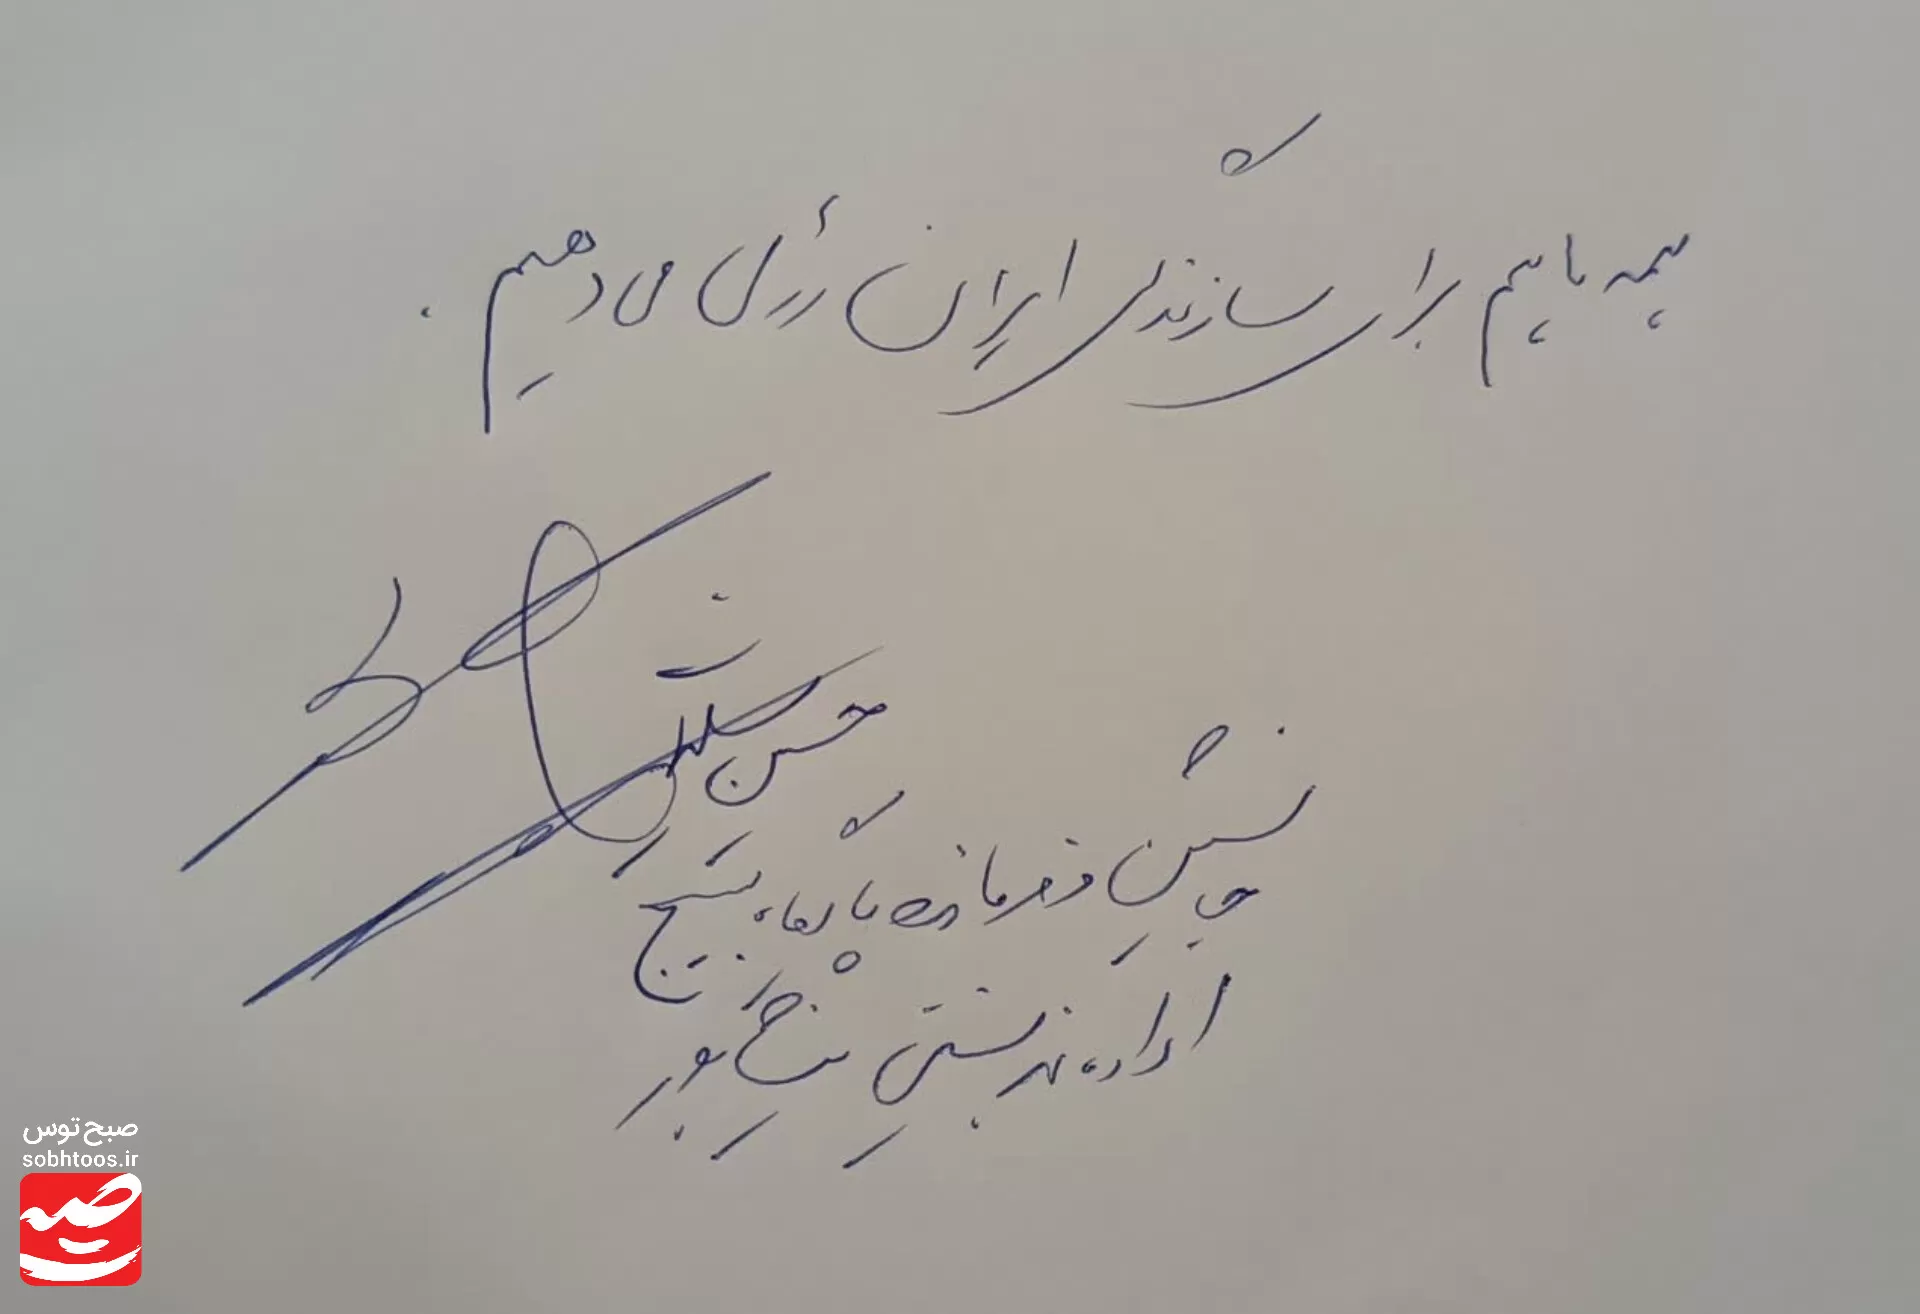 همه با هم برای سازندگی ایران رأی می دهیم .
حسن
جانشین فرمانده پایگاه بسیج
اداره بهزیستی نیشابور
صبح توس
sobhtoos.ir